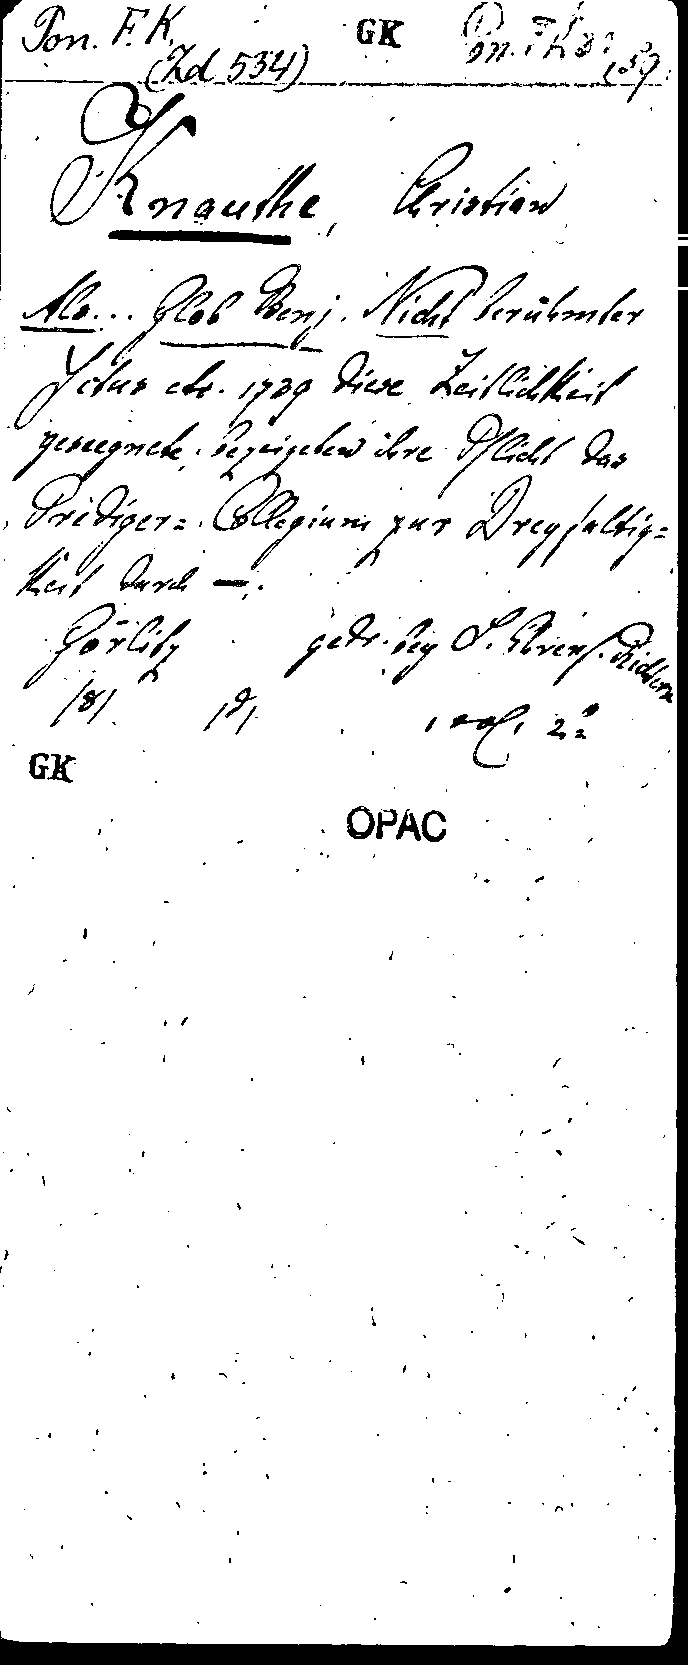 Pon. F. K. GK Pon. F K
(Zd 534)
Knauthe, Christian
Als... Glob Benj. Nicht berühmter
Ictus etc. 1739 diese Zeitlichkeit
geseegnete, bezeigeten ihre Pflicht das
Prediger-Collegium zur Dreyfaltig=
keit durch —.
Görlitz gedr. bey S. Ehrenf. Richtern
2°
GK
OPAC